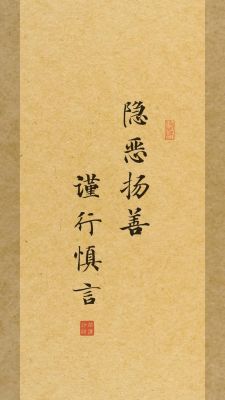 隐恶扬善
谨行慎言